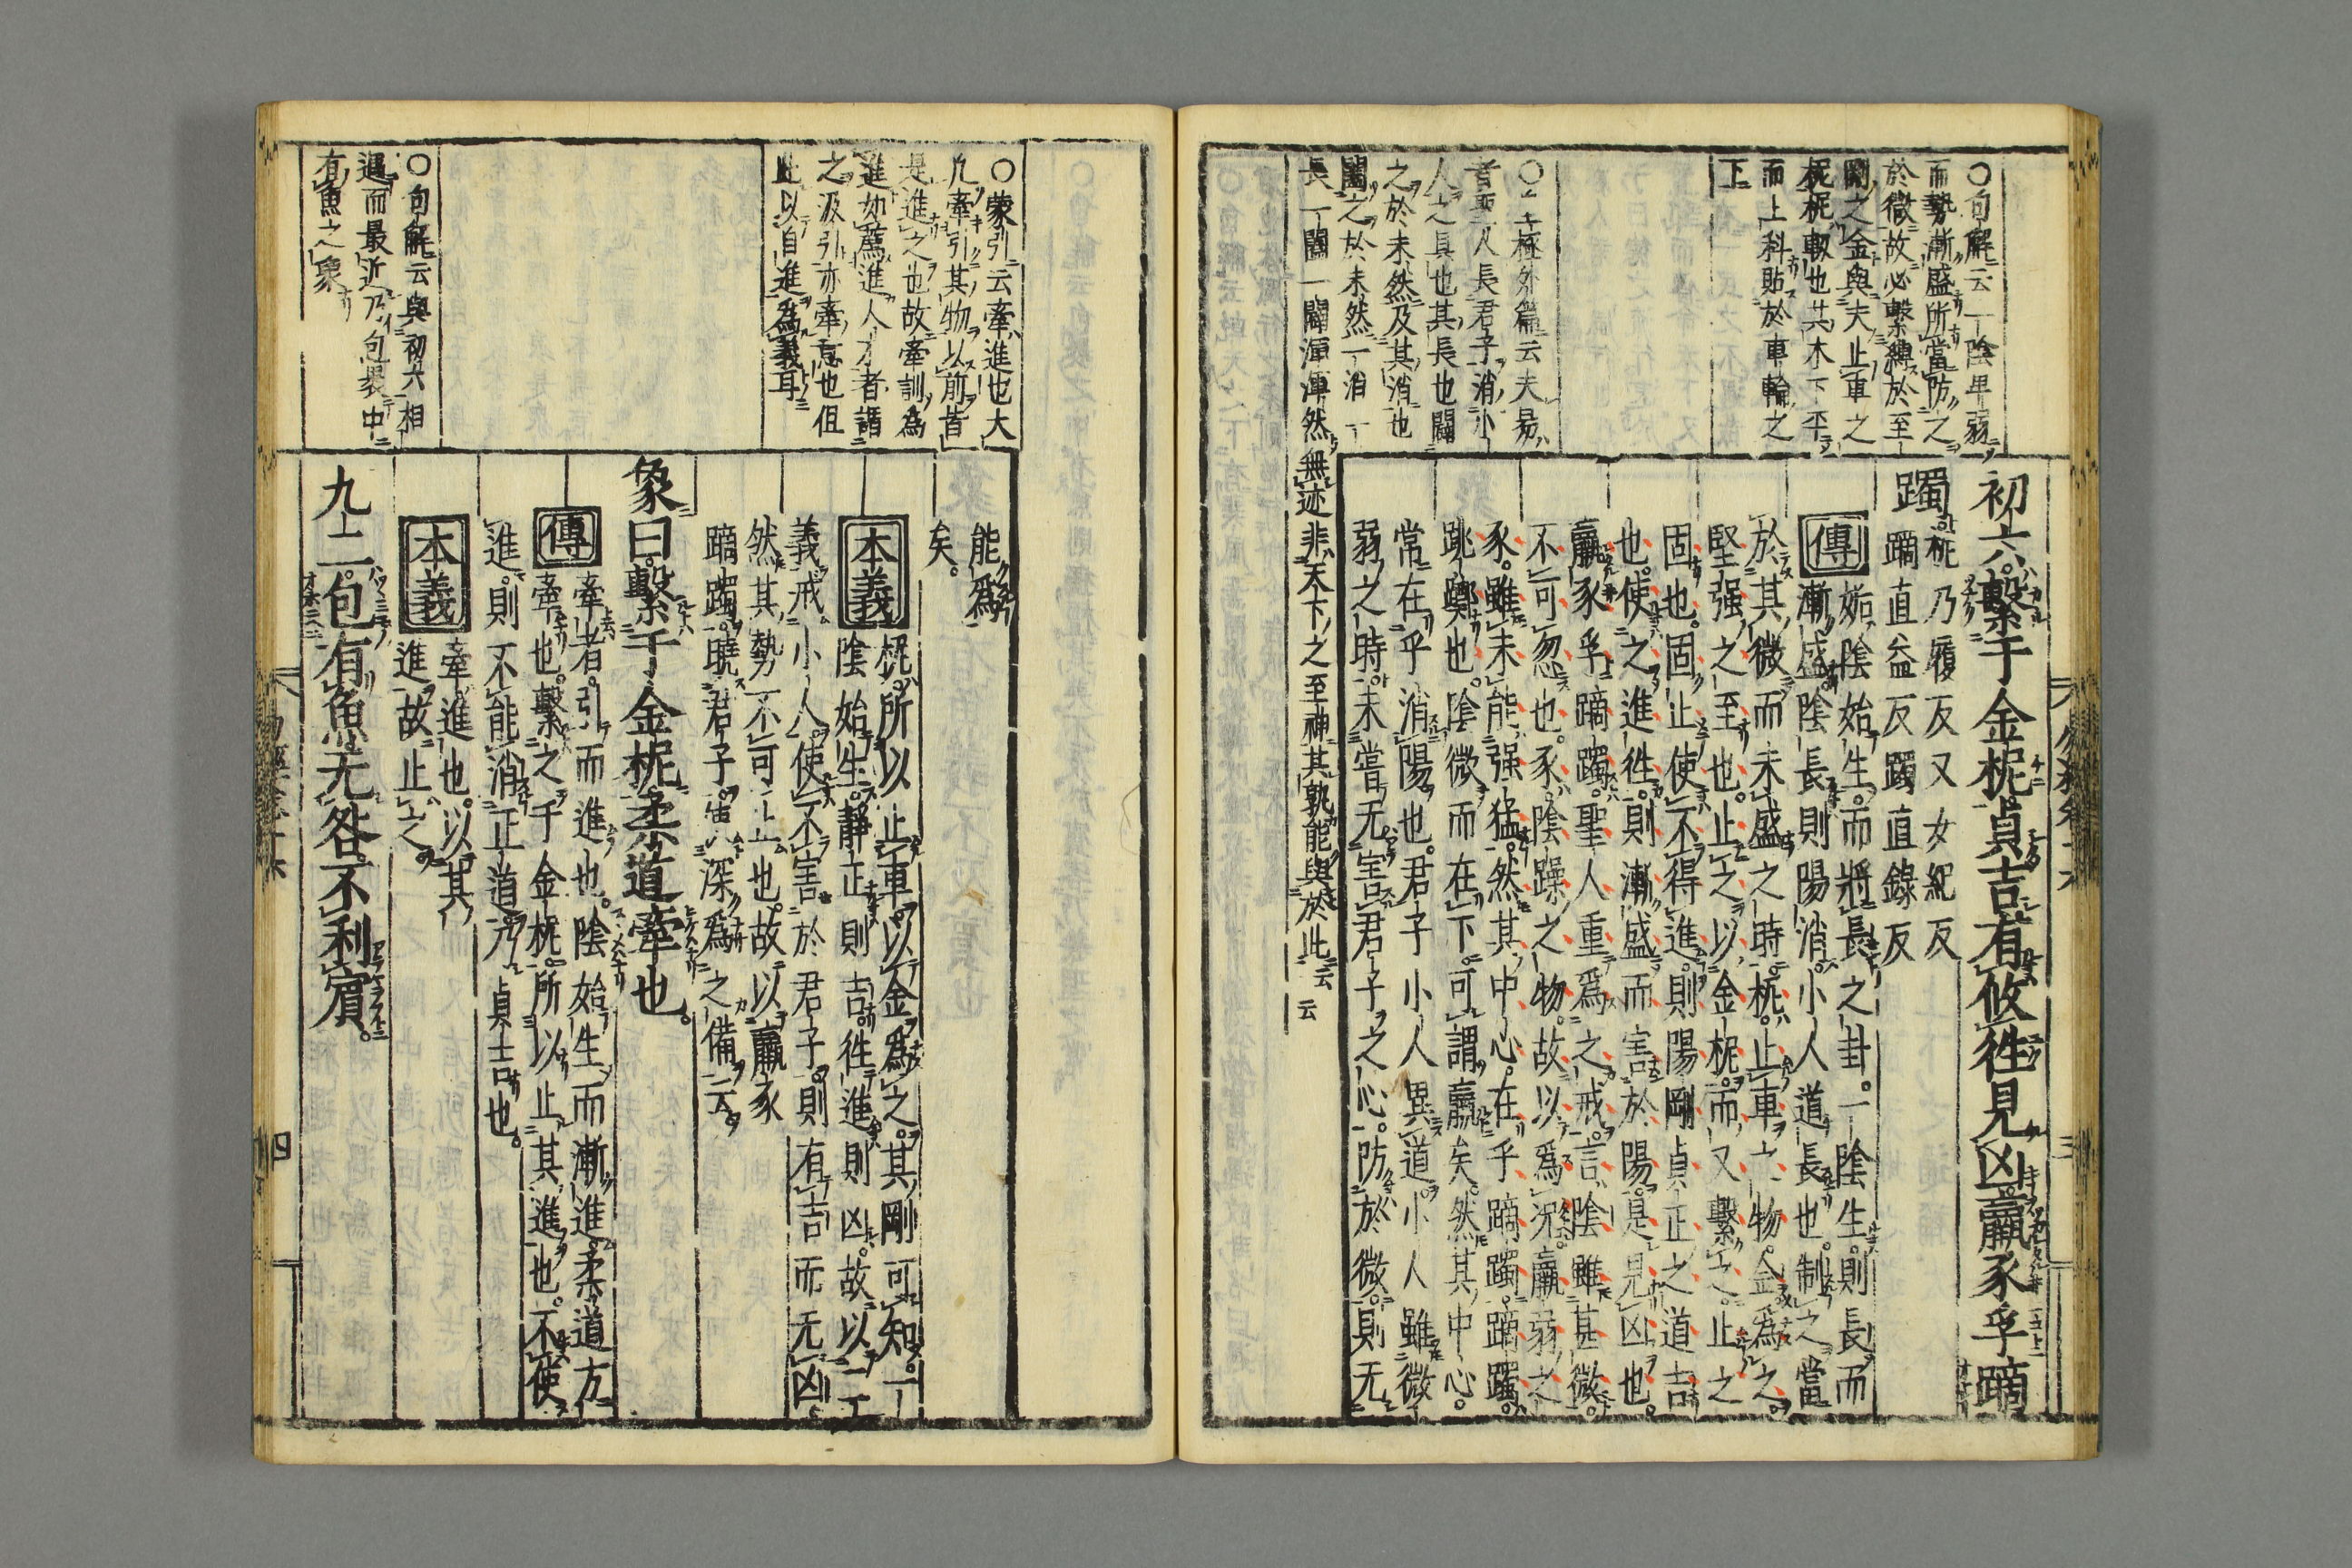 初六繫于金柅貞吉有攸徃見凶羸豕孚蹢
躅
柅乃履反又女紀反
蹢直益反躅直錄反
傳
姤陰始生而將長之卦一陰生則長而
漸盛陰長則陽消小人道長也制之當
於其微而未盛之時柅止車之物金爲之
堅强之至也止之以金柅而又繫之止之
固也固止使不得進則陽剛貞正之道吉
也使之進徃則漸盛而害於陽是見凶也
羸豕孚蹢躅聖人重爲之戒言陰雖甚微
不可忽也豕陰躁之物故以爲况羸弱之
豕雖未能强猛然其中心在乎蹢躅蹢躅
跳躑也陰微而在下可謂羸矣然其中心
常在乎消陽也君子小人異道小人雖微
弱之時未嘗无害君子之心防於微則无
○句解云一陰毕弱
而勢漸盛所當防之
於微故必繫縛於至
剛之金與夫止車之
柅柅
也其木下平
而上科貼於車輪之
下
極外篇云夫易
者聖人長君子消小
人之具也其長也闢
之於未然及其消也
闔之於未然一消一
長一闔一闢渾渾然無迹非天下之至神其孰能與於此云云
能爲
矣
本義
柅所以止車以金爲之其剛可知一
陰始生靜正則吉徃進則凶故以二
義戒小人使不害於君子則有吉而无凶
然其勢不可止也故以羸豕
蹢躅曉君子
深爲之備云
象曰繫于金柅柔道牽也
傳
牽者引而進也陰始生而漸進柔道方
牽也繫之于金柅所以止其進也不使
進則不能消正道乃貞吉也
本義
牽進也以其
進故止之
九二包有魚无咎不利賓
○蒙引云牽進也大
凡牽引其物以前皆
是進之也故牽訓爲
進如薦進人才者謂
之汲引亦牽意也但
此以自進爲義耳
○句解云與初六相
遇而最近乃包褁中
有魚之象
四